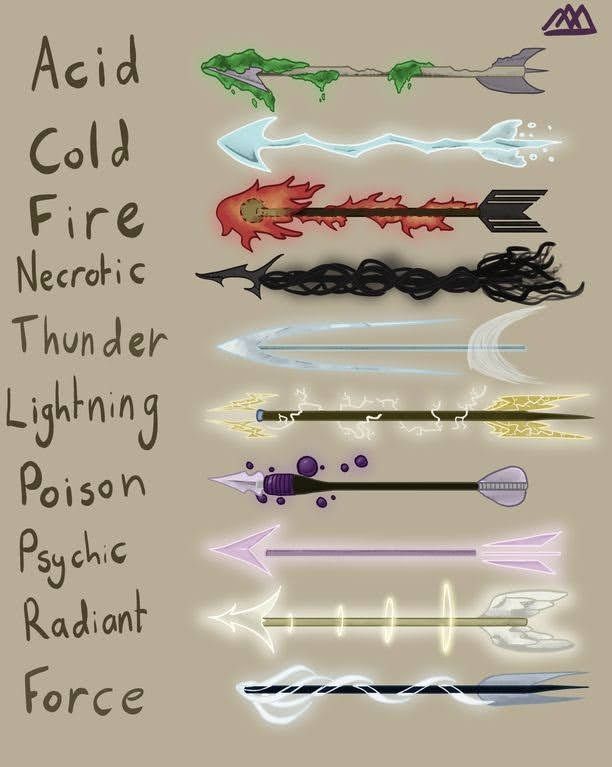 Acid
Cold
Fire
Necrotic
Thunder
Lightning
Poison
Psychic
Radiant
Force